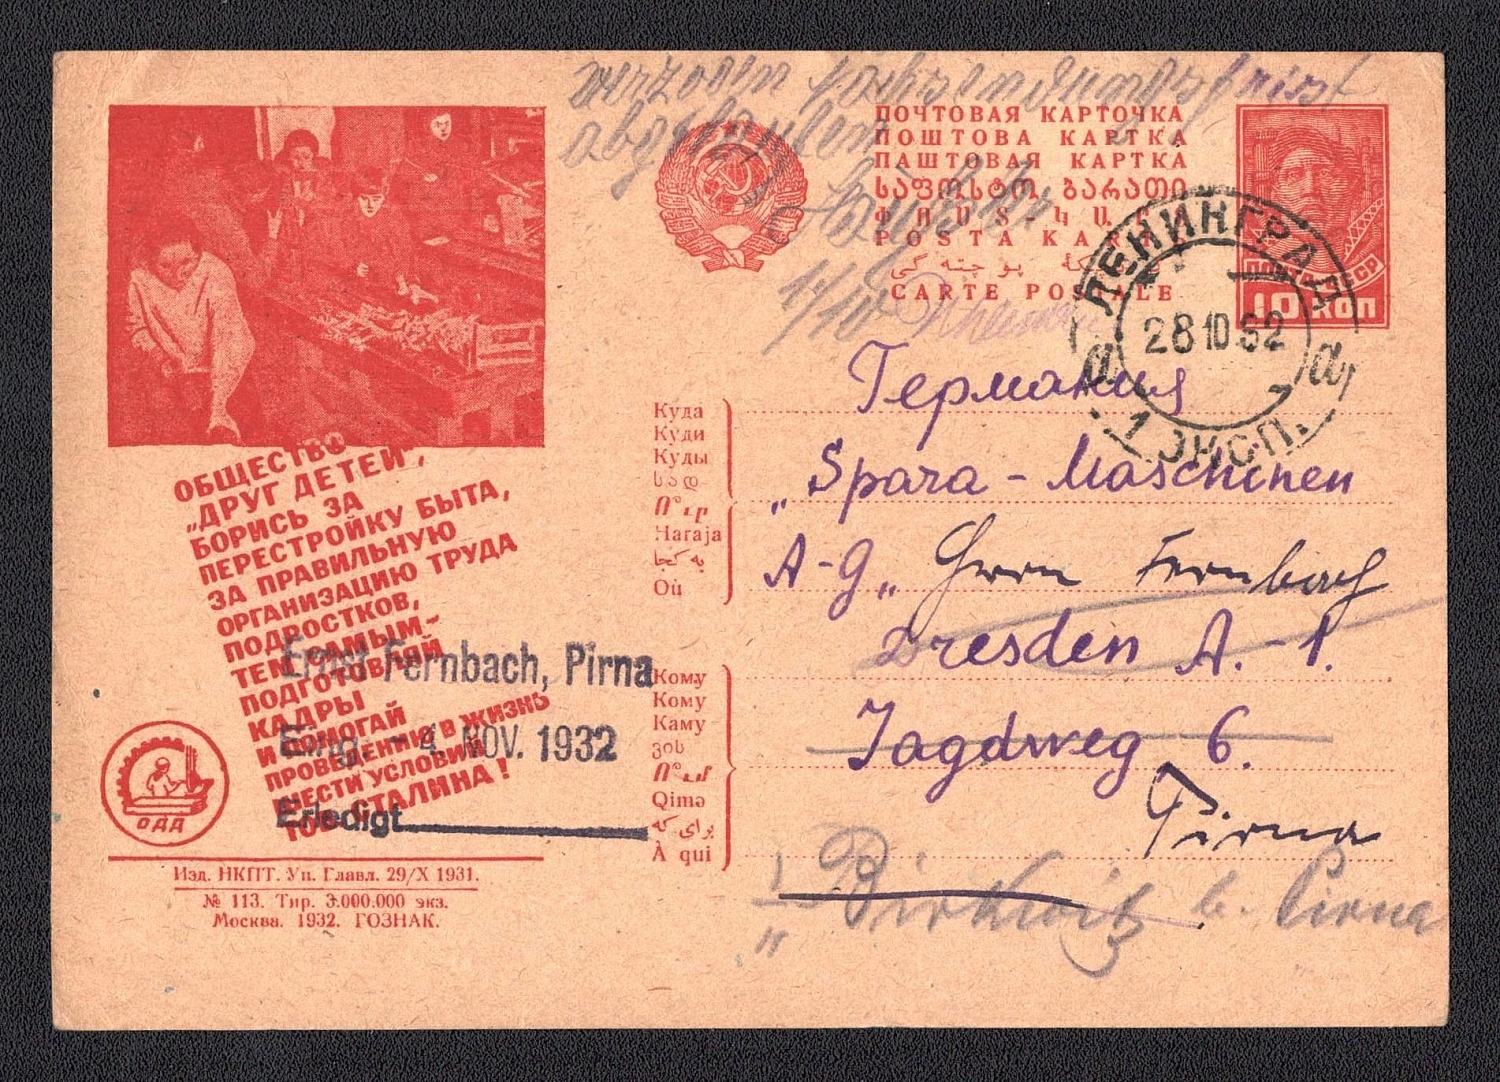 verzogen
abgelaufen
17/10
ПОЧТОВАЯ КАРТОЧКА
ПОШТОВА КАРТКА
ПАШТОВАЯ КАРТКА
ᲡᲐᲤᲝᲡᲢᲝ ᲑᲐᲠᲐᲗᲘ
POSTA KA
CARTE POSTALE
ПОЧТА СССР
10 КОП
ЛЕНИНГРАД
28 10 32
а а
1 ЭКСП.
ОБЩЕСТВО
„ДРУГ ДЕТЕЙ",
БОРИСЬ ЗА
ПЕРЕСТРОЙКУ БЫТА,
ЗА ПРАВИЛЬНУЮ
ОРГАНИЗАЦИЮ ТРУДА
ПОДРОСТКОВ,
ТЕМ САМЫМ-
ПОДГОТОВЛЯЙ
КАДРЫ
И ПОМОГАЙ
ПРОВЕДЕНИЮ В ЖИЗНЬ
ШЕСТИ УСЛОВИЙ
ТОВ. СТАЛИНА!
Ernst Fernbach, Pirna
Eing. - 4. NOV. 1932
Erledigt
ОДД
Изд. НКПТ. Уп. Главл. 29/X 1931.
№ 113. Тир. 3.000.000 экз.
Москва. 1932. ГОЗНАК.
Куда
Куди
Куды
სად
Haraja
به كجا
Où
Германия
„Spara - Maschinen
A-G„ Herrn Fernbach
Dresden A.-1.
Jagdweg 6.
Pirna
Кому
Кому
Каму
ვის
Qimə
برای که
À qui
Birkwitz b. Pirna